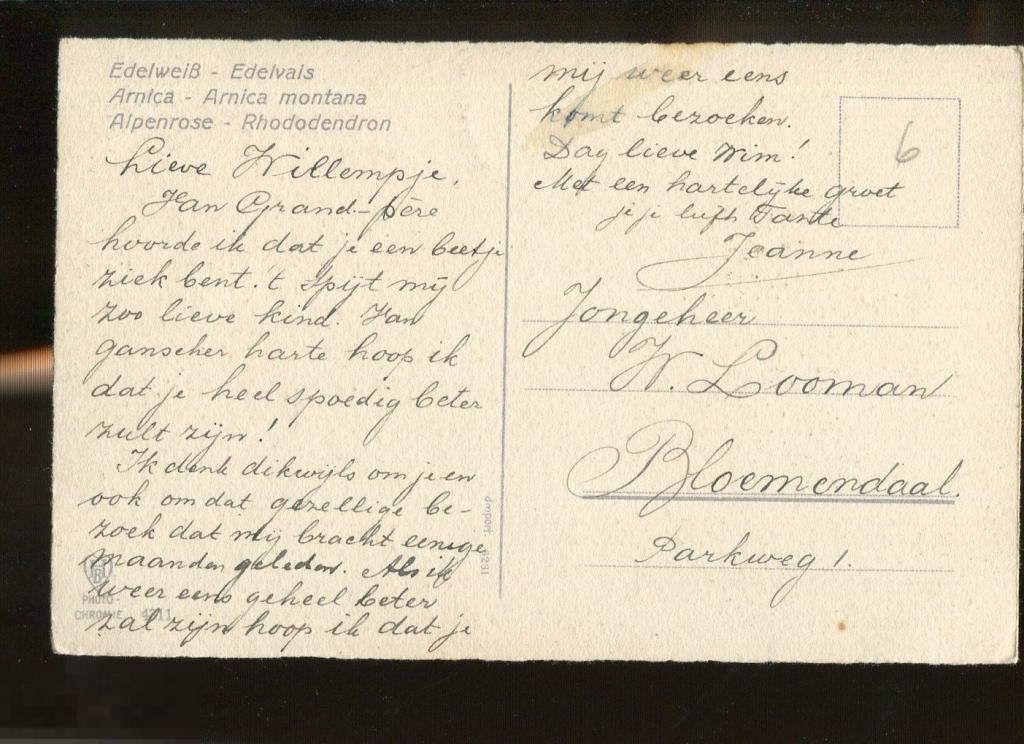 Edelweiß - Edelvais
Arnica - Arnica montana
Alpenrose - Rhododendron
Lieve Willempje,
Van Grand-père
hoorde ik dat je een beetje
ziek bent. 't Spijt mij
zoo lieve kind. Van
ganscher harte hoop ik
dat je heel spoedig beter
zult zijn!
Ik denk dikwijls om je en
ook om dat gezellige be-
zoek dat mij bracht eenige
maanden geleden. Als ik
weer eens geheel beter
zal zijn hoop ik dat je
mij weer eens
komt bezoeken.
Dag lieve Wim!
Met een hartelijke groet
je je liefh Tante
Jeanne
6
Jongeheer
W. Looman
Bloemendaal.
Parkweg 1.
Import 8231
PHOTO-
CHROMIE 4211